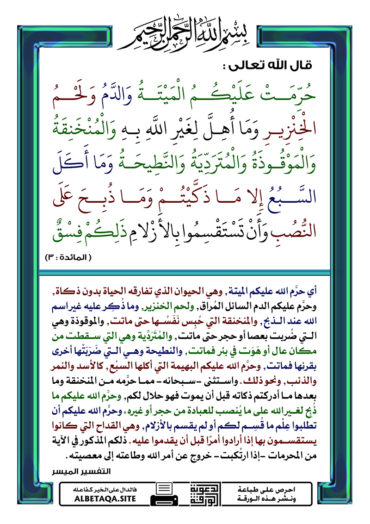 بسم الله الرحمن الرحيم
قال الله تعالى :
حُرِّمَتْ عَلَيْكُمُ الْمَيْتَةُ وَالدَّمُ وَلَحْمُ
الْخِنْزِيرِ وَمَا أُهِلَّ لِغَيْرِ اللَّهِ بِهِ وَالْمُنْخَنِقَةُ
وَالْمَوْقُوذَةُ وَالْمُتَرَدِّيَةُ وَالنَّطِيحَةُ وَمَا أَكَلَ
السَّبُعُ إِلَّا مَا ذَكَّيْتُمْ وَمَا ذُبِحَ عَلَى
النُّصُبِ وَأَنْ تَسْتَقْسِمُوا بِالْأَزْلَامِ ذَلِكُمْ فِسْقٌ
( المائدة : ٣)
أي حرَّم الله عليكم الميتة , وهي الحيوان الذي تفارقه الحياة بدون ذكاة ,
وحرَّم عليكم الدم السائل المُراق , ولحم الخنزير , وما ذُكِر عليه غير اسم
الله عند الذبح , والمنخنقة التي حُبس نَفَسُها حتى ماتت , والموقوذة وهي
التي ضُربت بعصا أو حجر حتى ماتت , والمُتَرَدِّية وهي التي سقطت من
مكان عال أو هَوَت في بئر فماتت , والنطيحة وهي التي ضَرَبَتْها أخرى
بقرنها فماتت , وحرَّم الله عليكم البهيمة التي أكلها السبُع , كالأسد والنمر
والذئب , ونحو ذلك . واستثنى -سبحانه- مما حرَّمه من المنخنقة وما
بعدها ما أدركتم ذكاته قبل أن يموت فهو حلال لكم , وحرَّم الله عليكم ما
ذُبِح لغير الله على ما يُنصب للعبادة من حجر أو غيره , وحرَّم الله عليكم أن
تطلبوا عِلْم ما قُسِم لكم أو لم يقسم بالأزلام , وهي القداح التي كانوا
يستقسمون بها إذا أرادوا أمرًا قبل أن يقدموا عليه . ذلكم المذكور في الآية
من المحرمات -إذا ارتُكبت- خروج عن أمر الله وطاعته إلى معصيته .
التفسير الميسر
احرص على طباعة
ونشر هذه الورقة
الدعوية
الورقة
فالدال على الخير كفاعله
ALBETAQA.SITE